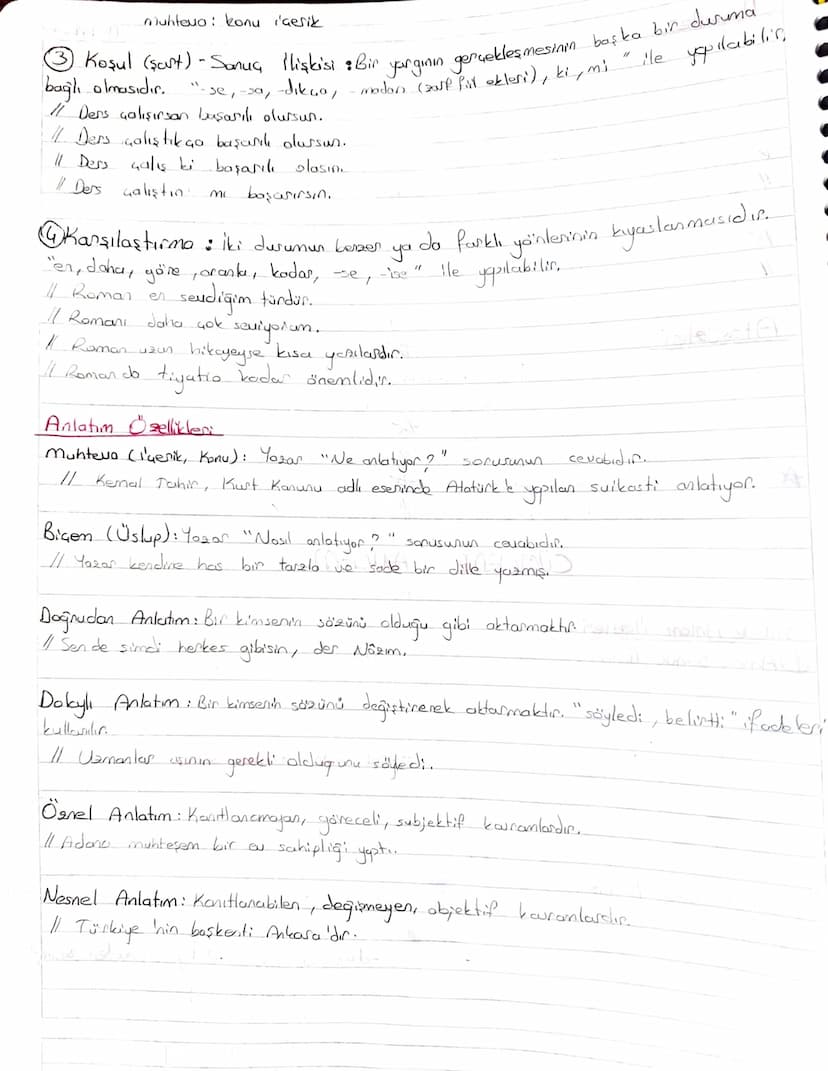 muhteva : konu içerik
③ Koşul (şart) - Sonuç İlişkisi : Bir yargının gerçekleşmesinin başka bir duruma
bağlı olmasıdır. "-se, -sa, -dıkça, -madan (zarf fiil ekleri), ki, mi" ile yapılabilir.
// Ders çalışırsan başarılı olursun.
// Ders çalıştıkça başarılı olursun.
// Ders çalış ki başarılı olasın.
// Ders çalıştın mı başarırsın.
④ Karşılaştırma : İki durumun benzer ya da farklı yönlerinin kıyaslanmasıdır.
"en, daha, göre, oranla, kadar, -se, -ise" ile yapılabilir.
// Roman en sevdiğim türdür.
// Romanı daha çok seviyorum.
// Roman uzun hikayeyse kısa yazılardır.
// Roman da tiyatro kadar önemlidir.
Anlatım Özellikleri
Muhteva (İçerik, Konu) : Yazar "Ne anlatıyor?" sorusunun cevabıdır.
// Kemal Tahir, Kurt Kanunu adlı eserinde Atatürk'e yapılan suikasti anlatıyor.
Biçem (Üslup) : Yazar "Nasıl anlatıyor?" sorusunun cevabıdır.
// Yazar kendine has bir tarzla ve sade bir dille yazmış.
Doğrudan Anlatım : Bir kimsenin sözünü olduğu gibi aktarmaktır.
// Sen de şimdi herkes gibisin, der Nazım.
Dolaylı Anlatım : Bir kimsenin sözünü değiştirerek aktarmaktır. "söyledi, belirtti" ifadeleri
kullanılır.
// Uzmanlar aşının gerekli olduğunu söyledi.
Öznel Anlatım : Kanıtlanamayan, göreceli, subjektif kavramlardır.
// Adana muhteşem bir ev sahipliği yaptı.
Nesnel Anlatım : Kanıtlanabilen, değişmeyen, objektif kavramlardır.
// Türkiye'nin başkenti Ankara'dır.